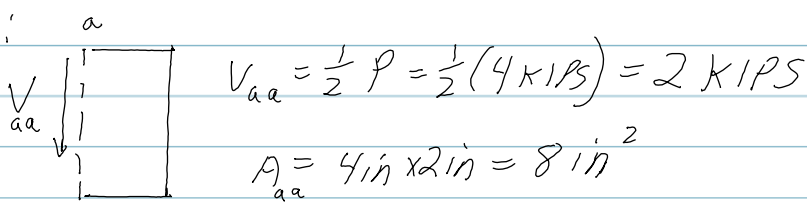 a
V_aa
V_aa = 1/2 P = 1/2 (4 KIPS) = 2 KIPS
A_aa = 4in x 2in = 8 in^2